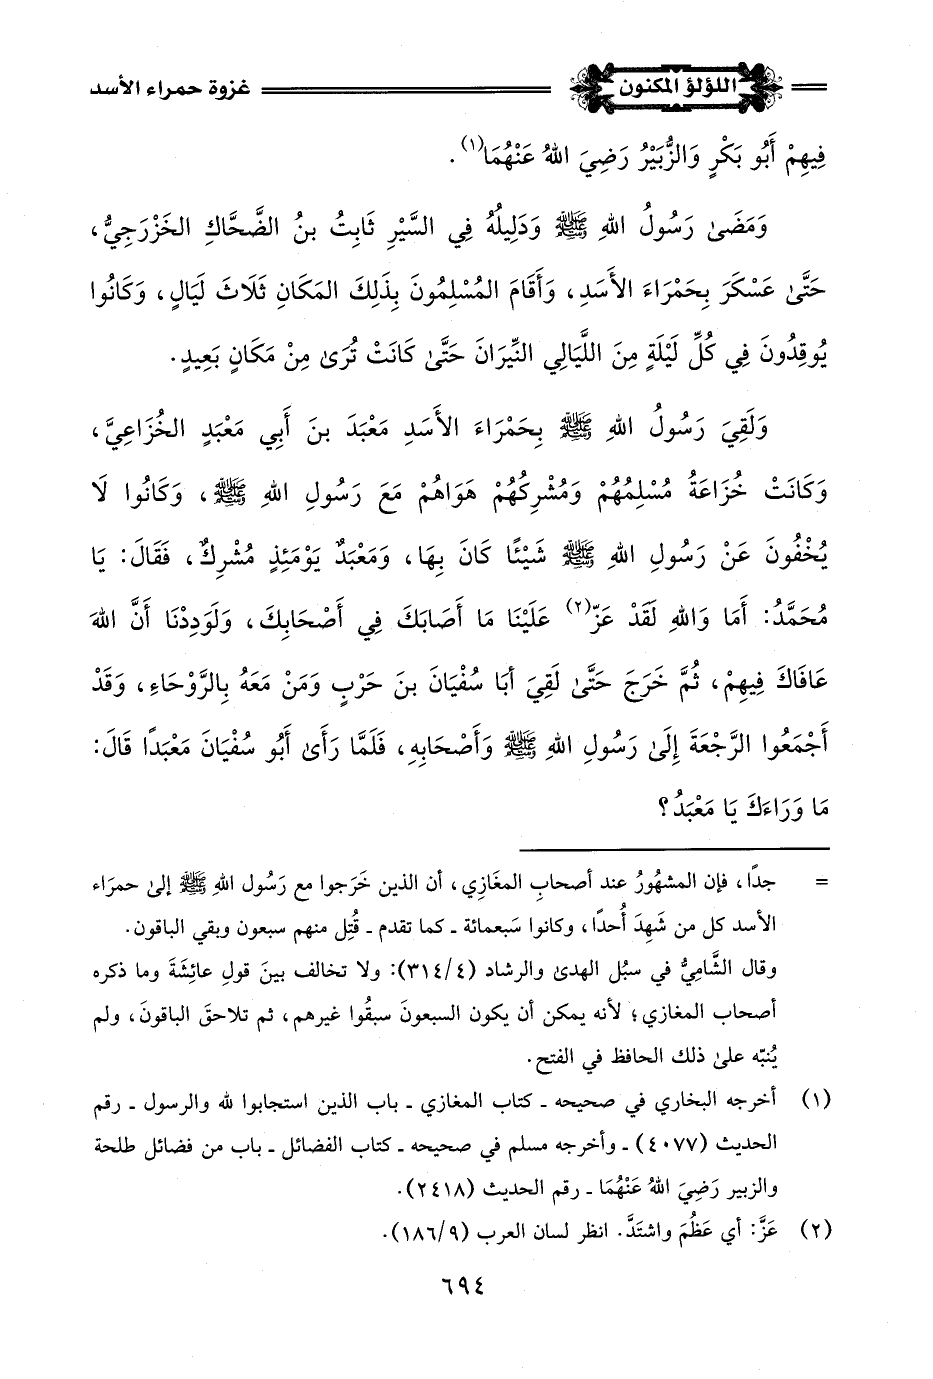 اللؤلؤ المكنون
غزوة حمراء الأسد
فِيهِمْ أَبُو بَكْرٍ وَالزُّبَيْرُ رَضِيَ اللهُ عَنْهُمَا(١).
وَمَضَىٰ رَسُولُ اللهِ ﷺ وَدَلِيلُهُ فِي السَّيْرِ ثَابِتُ بنُ الضَّحَّاكِ الخَزْرَجِيُّ،
حَتَّىٰ عَسْكَرَ بِحَمْرَاءَ الأَسَدِ، وَأَقَامَ المُسْلِمُونَ بِذَلِكَ المَكَانِ ثَلَاثَ لَيَالٍ، وَكَانُوا
يُوقِدُونَ فِي كُلِّ لَيْلَةٍ مِنَ اللَّيَالِي النِّيرَانَ حَتَّىٰ كَانَتْ تُرَىٰ مِنْ مَكَانٍ بَعِيدٍ.
وَلَقِيَ رَسُولُ اللهِ ﷺ بِحَمْرَاءَ الأَسَدِ مَعْبَدَ بنَ أَبِي مَعْبَدٍ الخُزَاعِيَّ،
وَكَانَتْ خُزَاعَةُ مُسْلِمُهُمْ وَمُشْرِكُهُمْ هَوَاهُمْ مَعَ رَسُولِ اللهِ ﷺ، وَكَانُوا لَا
يُخْفُونَ عَنْ رَسُولِ اللهِ ﷺ شَيْئًا كَانَ بِهَا، وَمَعْبَدٌ يَوْمَئِذٍ مُشْرِكٌ، فَقَالَ: يَا
مُحَمَّدُ: أَمَا وَاللهِ لَقَدْ عَزَّ(٢) عَلَيْنَا مَا أَصَابَكَ فِي أَصْحَابِكَ، وَلَوَدِدْنَا أَنَّ اللهَ
عَافَاكَ فِيهِمْ، ثُمَّ خَرَجَ حَتَّىٰ لَقِيَ أَبَا سُفْيَانَ بنَ حَرْبٍ وَمَنْ مَعَهُ بِالرَّوْحَاءِ، وَقَدْ
أَجْمَعُوا الرَّجْعَةَ إِلَىٰ رَسُولِ اللهِ ﷺ وَأَصْحَابِهِ، فَلَمَّا رَأَىٰ أَبُو سُفْيَانَ مَعْبَدًا قَالَ:
مَا وَرَاءَكَ يَا مَعْبَدُ؟
= جدًا، فإن المشهُورُ عند أصحابِ المغَازِي، أن الذين خَرَجوا مع رَسُول اللهِ ﷺ إلىٰ حمرَاء
الأسد كل من شَهِدَ أُحدًا، وكانوا سَبعمائة ـ كما تقدم ـ قُتِل منهم سبعون وبقي الباقون.
وقال الشَّامِيُّ في سبُل الهدىٰ والرشاد (٣١٤/٤): ولا تخالف بينَ قولِ عائِشَةَ وما ذكره
أصحاب المغازي؛ لأنه يمكن أن يكون السبعونَ سبقُوا غيرهم، ثم تلاحقَ الباقونَ، ولم
يُنبّه علىٰ ذلك الحافظ في الفتح.
(١) أخرجه البخاري في صحيحه ـ كتاب المغازي ـ باب الذين استجابوا لله والرسول ـ رقم
الحديث (٤٠٧٧) ـ وأخرجه مسلم في صحيحه ـ كتاب الفضائل ـ باب من فضائل طلحة
والزبير رَضِيَ اللهُ عَنْهُمَا ـ رقم الحديث (٢٤١٨).
(٢) عَزَّ: أي عَظُمَ واشتَدَّ. انظر لسان العرب (١٨٦/٩).
٦٩٤